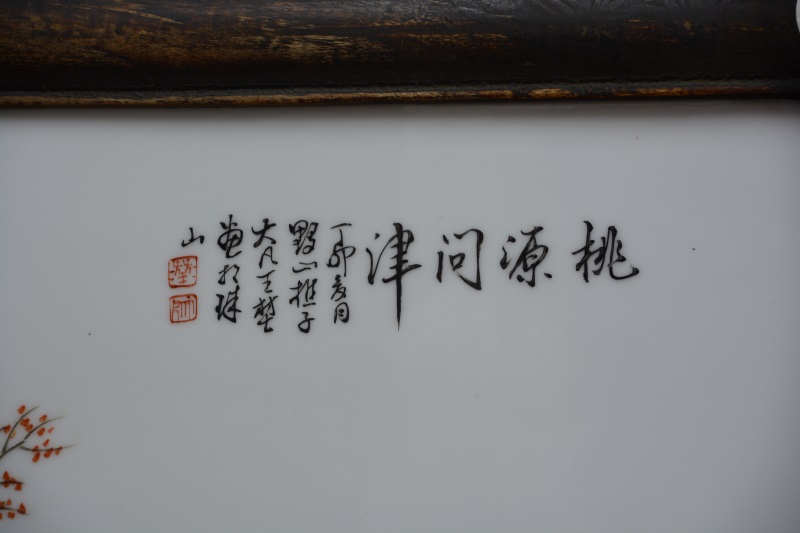 桃源问津
丁卯夏月
黟山樵子
大凡王堃
画于珠
山